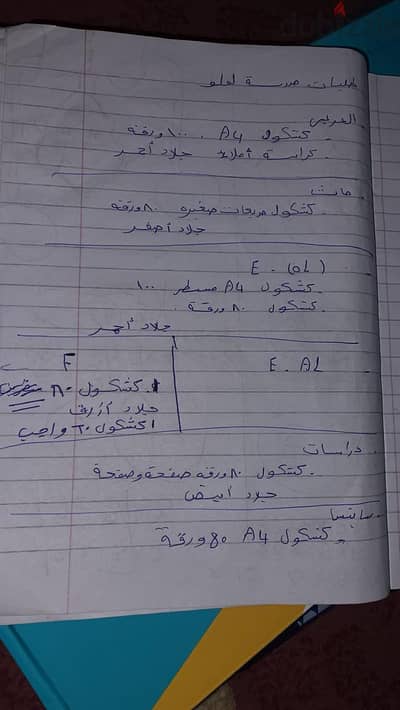 طلبات مدرسة لولو
العربى
كشكول A4 ١٠٠ ورقة
كراسة أملاء جلاد أحمر
ماث
كشكول مربعات صغيره ٨٠ ورقه
جلاد أصفر
E. (OL)
كشكول A4 مسطر ١٠٠
كشكول ٨٠ ورقة
جلاد أحمر
E. AL
F
كشكول ٨٠
جلاد أزرق
١ كشكول ٦٠ واجب
دراسات
كشكول ٨٠ ورقه صفحة وصفحة
جلاد أبيض
ساينس
كشكول A4 80 ورقة